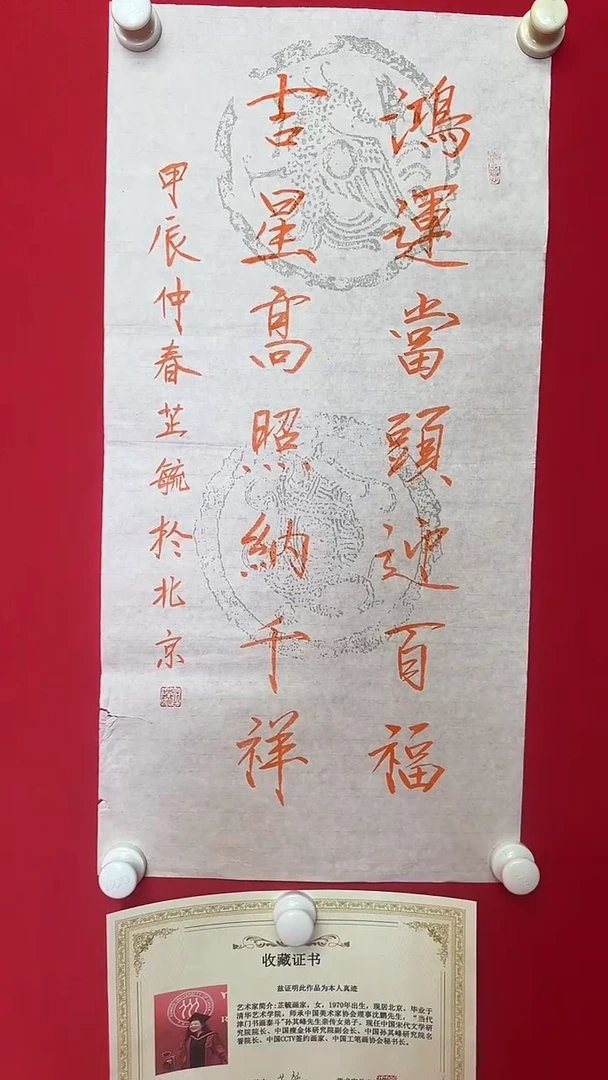 鴻運當頭迎百福
吉星高照納千祥
甲辰仲春芷毓於北京
收藏证书
兹证明此作品为本人真迹
艺术家简介:芷毓画家，女，1970年出生，现居北京，毕业于
清华艺术学院，师承中国美术家协会理事沈鹏先生，“当代
津门书画泰斗”孙其峰先生亲传女弟子。现任中国宋代文学研
究院院长、中国瘦金体研究院副会长、中国孙其峰研究院名
誉院长、中国CCTV签约画家、中国工笔画协会秘书长。